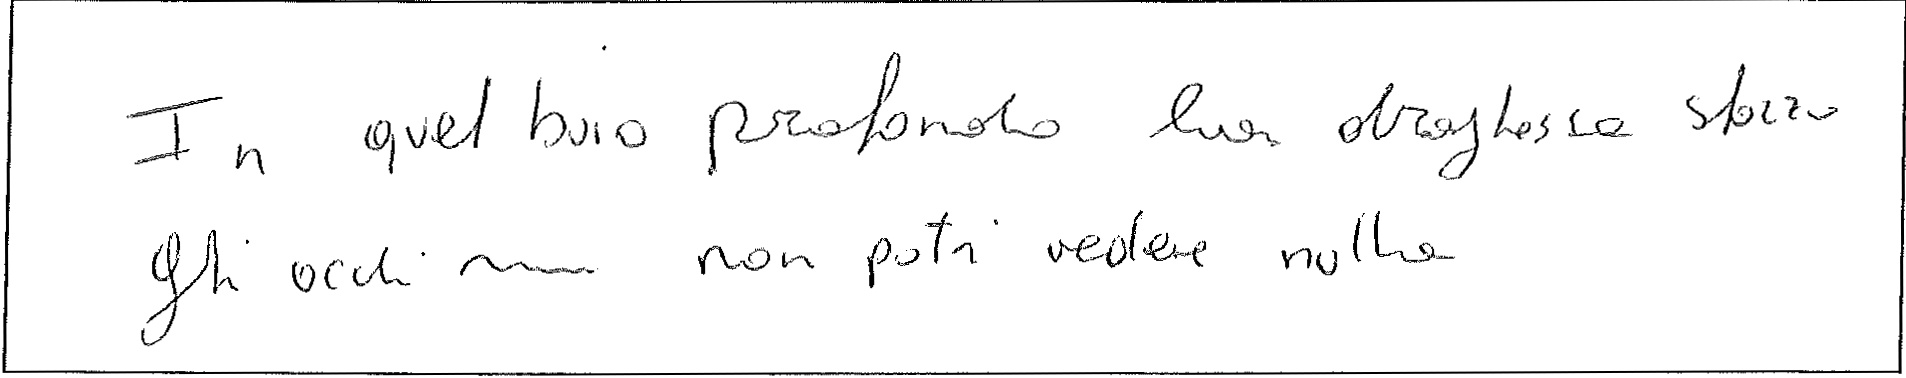 In quel buio profondo la draghessa sforzo
gli occhi ma non poti vedere nulla